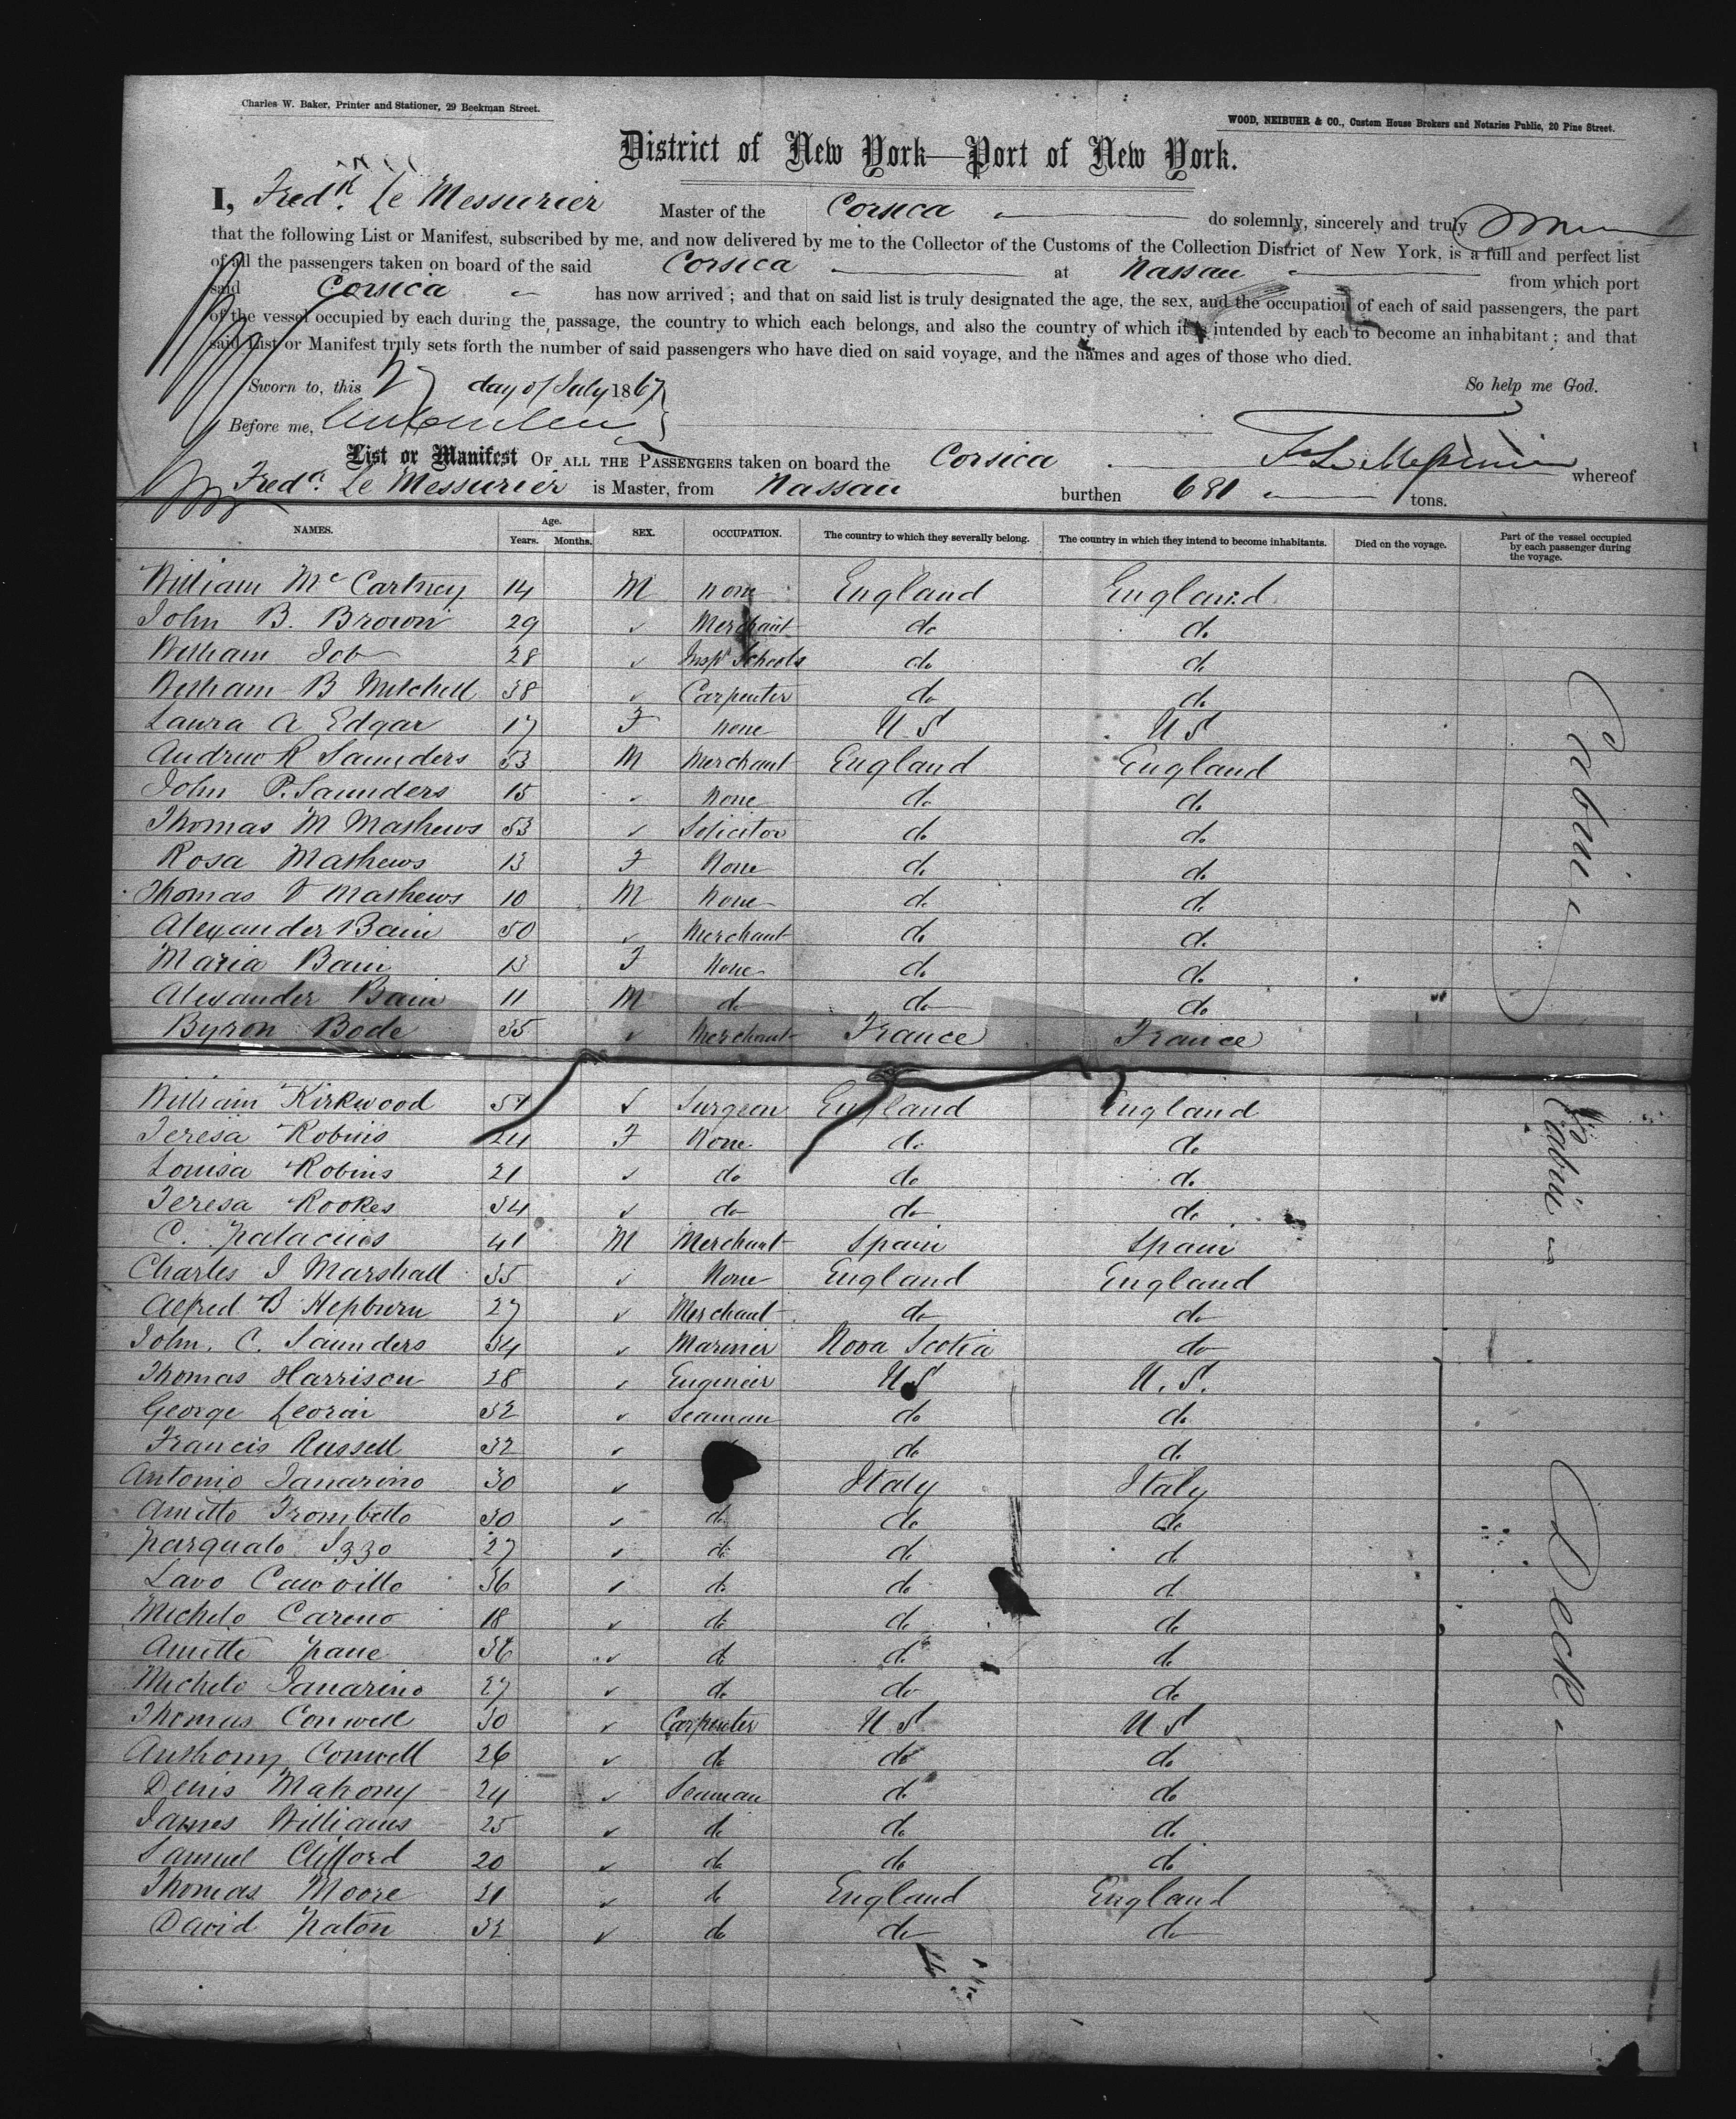 Charles W. Baker, Printer and Stationer, 29 Beekman Street.
WOOD, NEIBUHR & CO., Custom House Brokers and Notaries Public, 20 Pine Street.
District of New York—Port of New York.
I, Fredk. Le Messurier Master of the Corsica do solemnly, sincerely and truly
that the following List or Manifest, subscribed by me, and now delivered by me to the Collector of the Customs of the Collection District of New York, is a full and perfect list
of all the passengers taken on board of the said Corsica at Nassau from which port
said Corsica has now arrived; and that on said list is truly designated the age, the sex, and the occupation of each of said passengers, the part
of the vessel occupied by each during the passage, the country to which each belongs, and also the country of which it is intended by each to become an inhabitant; and that
said List or Manifest truly sets forth the number of said passengers who have died on said voyage, and the names and ages of those who died.
Sworn to, this 27 day of July 1867 So help me God.
Before me,
List or Manifest OF ALL THE PASSENGERS taken on board the Corsica whereof
Fredk. Le Messurier is Master, from Nassau burthen 681 tons.
NAMES. Age. Years. Months. SEX. OCCUPATION. The country to which they severally belong. The country in which they intend to become inhabitants. Died on the voyage. Part of the vessel occupied by each passenger during the voyage.
William McCartney 14 M None England England
John B. Brown 29 ✓ Merchant do do
William Job 28 ✓ Insp Schools do do
William B Mitchell 38 ✓ Carpenter do do
Laura A Edgar 17 F None U S U S
Andrew R Saunders 53 M Merchant England England
John P. Saunders 15 ✓ None do do
Thomas M Mathews 53 ✓ Solicitor do do
Rosa Mathews 13 F None do do
Thomas Mathews 10 M None do do
Alexander Bain 50 ✓ Merchant do do
Maria Bain 13 F None do do
Alexander Bain 11 M do do do
Byron Bode 35 ✓ Merchant France France
Cabin
William Kirkwood ✓ Surgeon England England
Teresa Robins 24 F None do do
Louisa Robins 21 ✓ do do do
Teresa Rookes 34 ✓ do do do
C. Palacios 41 M Merchant Spain Spain
Charles J Marshall 35 ✓ None England England
Alfred B Hepburn 27 ✓ Merchant do do
Cabin
John C. Saunders 34 ✓ Mariner Nova Scotia do
Thomas Harrison 28 ✓ Engineer U S U. S.
George 32 ✓ Seaman do do
Francis Russell 32 ✓ do do
Antonio Janarino 30 ✓ Italy Italy
Trombetto 30 ✓ do do do
Pasqualo Izzo 27 ✓ do do do
Lavo 36 ✓ do do do
Michelo Careno 18 ✓ do do do
Pane 36 ✓ do do do
Michelo Janarino 27 ✓ do do do
Thomas Conwell 30 ✓ Carpenter U S U S
Anthony Conwell 26 ✓ do do do
Denis Mahony 24 ✓ Seaman do do
James Williams 25 ✓ do do do
Samuel Clifford 20 ✓ do do do
Thomas Moore 31 ✓ do England England
David Paton 32 ✓ do do do
Deck